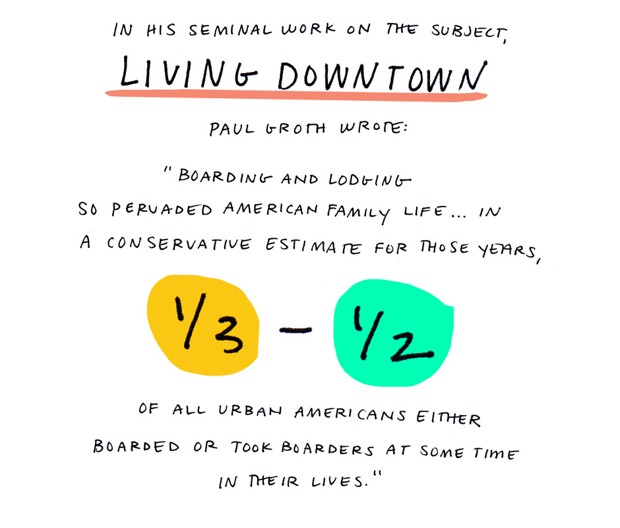 IN HIS SEMINAL WORK ON THE SUBJECT,
LIVING DOWNTOWN
PAUL GROTH WROTE:
"BOARDING AND LODGING
SO PERVADED AMERICAN FAMILY LIFE... IN
A CONSERVATIVE ESTIMATE FOR THOSE YEARS,
1/3 – 1/2
OF ALL URBAN AMERICANS EITHER
BOARDED OR TOOK BOARDERS AT SOME TIME
IN THEIR LIVES."